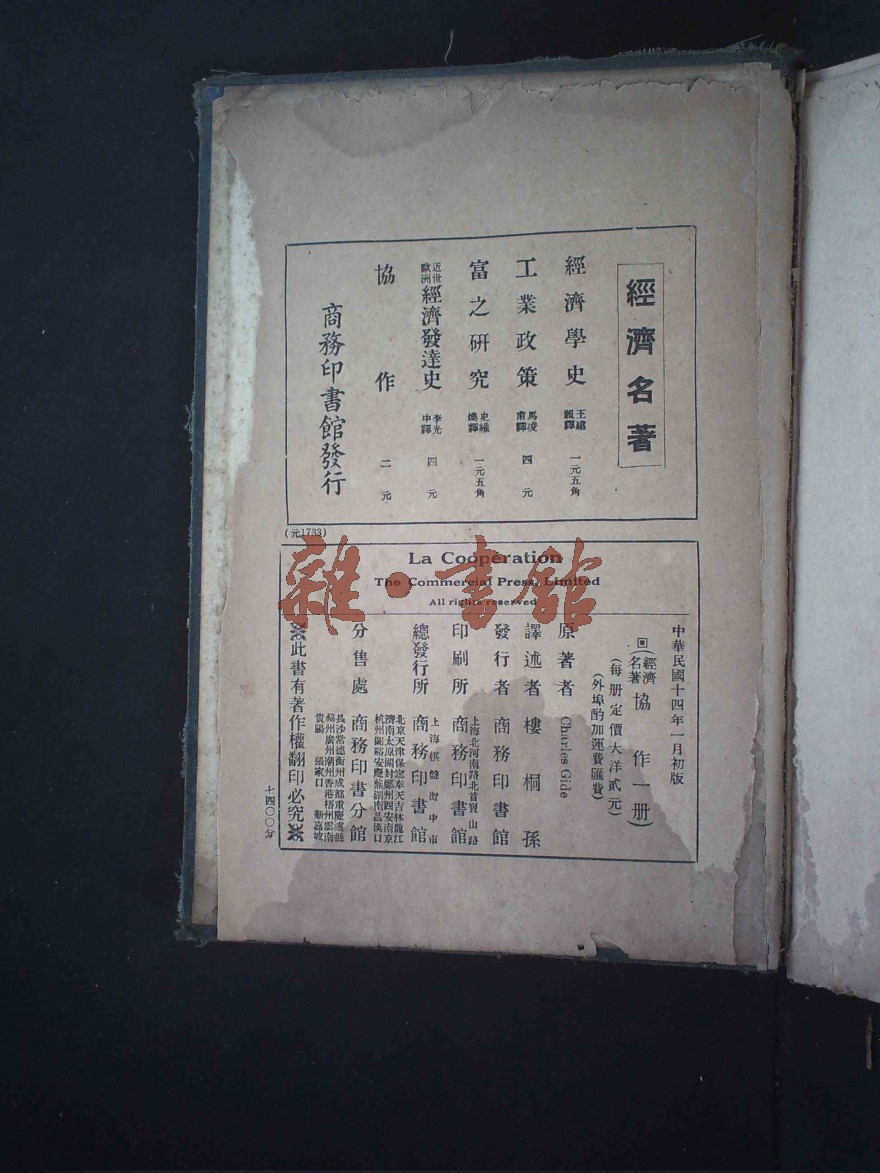 經濟名著
經濟學史 王建祖譯 一元五角
工業政策 馬凌甫譯 四元
富之研究 史維煥譯 一元五角
近世歐洲經濟發達史 李光中譯 四元
協作 二元
商務印書館發行
(元1733)
La Coopération
The Commercial Press, Limited
All rights reserved
中華民國十四年一月初版
回(經濟名著)協作一册
(每册定價大洋貳元)
(外埠酌加運費匯費)
原著者 Charles Gide
譯述者 樓桐孫
發行者 商務印書館
印刷所 上海北河南路北首寶山路 商務印書館
總發行所 上海棋盤街中市 商務印書館
分售處 北京天津保定奉天吉林龍江
濟南太原開封鄭州西安南京
杭州蘭谿安慶蕪湖南昌漢口
商務印書分館
長沙常德衡州成都重慶瀘縣
福州廣州潮州香港梧州雲南
貴陽 張家口 新嘉坡
※此書有著作權翻印必究※
十四〇〇分
雜·書館